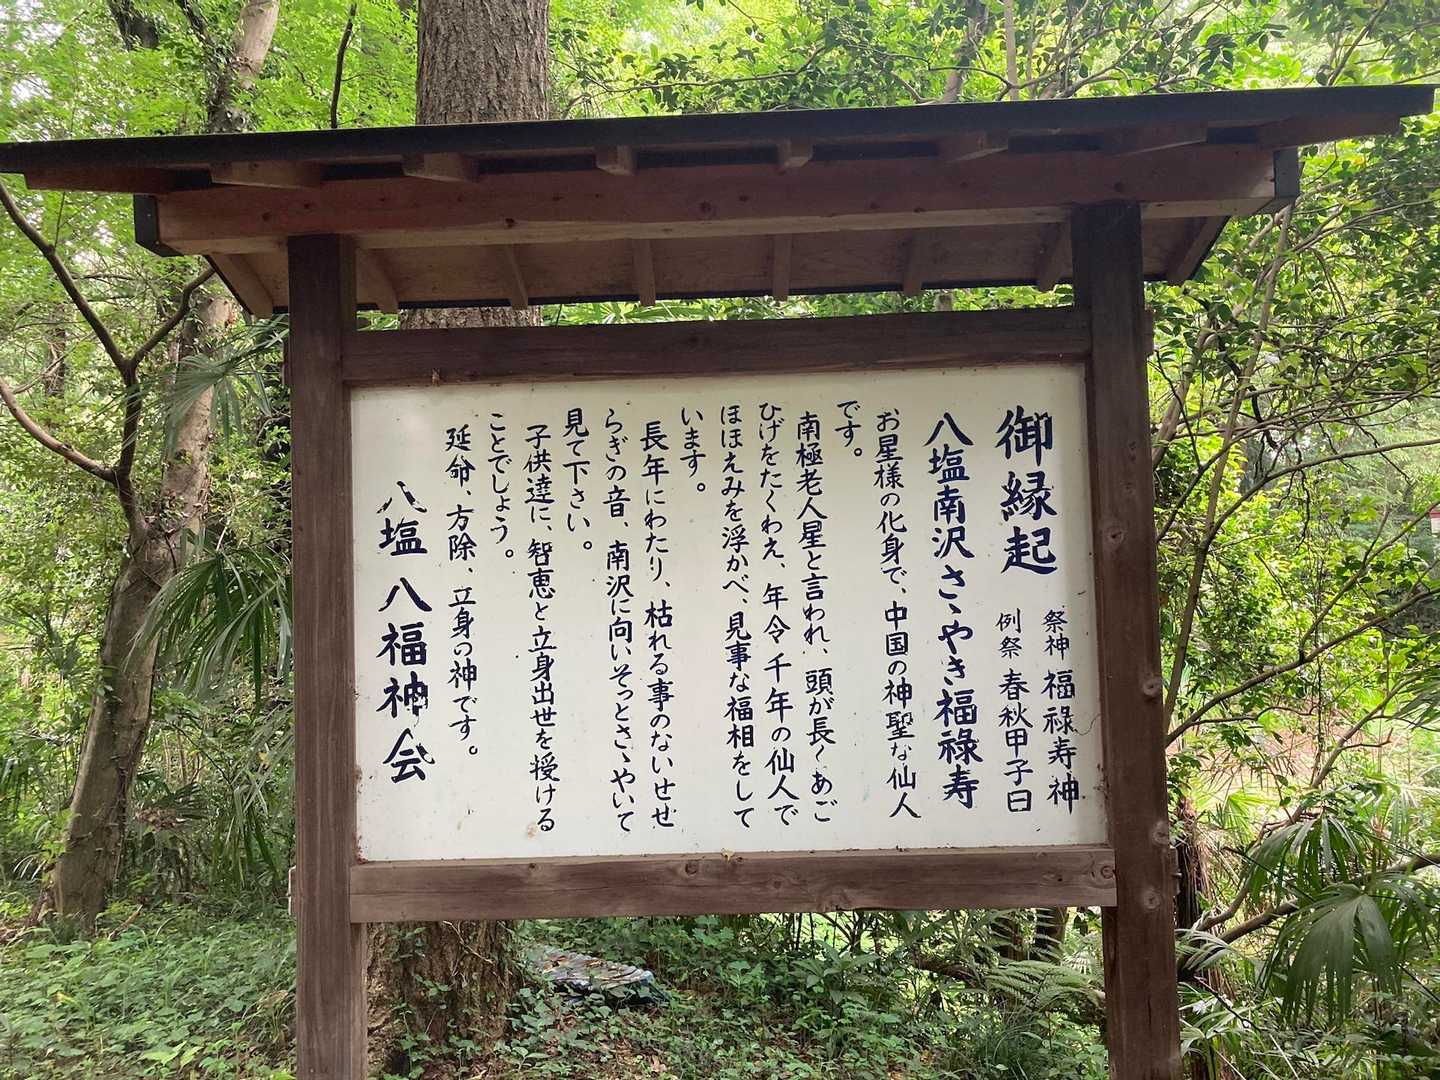 御縁起
祭神 福禄寿神
例祭 春秋甲子日
八塩南沢さゝやき福禄寿
お星様の化身で、中国の神聖な仙人
です。
南極老人星と言われ、頭が長くあご
ひげをたくわえ、年令千年の仙人で
ほほえみを浮かべ、見事な福相をして
います。
長年にわたり、枯れる事のないせせ
らぎの音、南沢に向いそっとさゝやいて
見て下さい。
子供達に、智恵と立身出世を授ける
ことでしょう。
延命、方除、立身の神です。
八塩八福神会